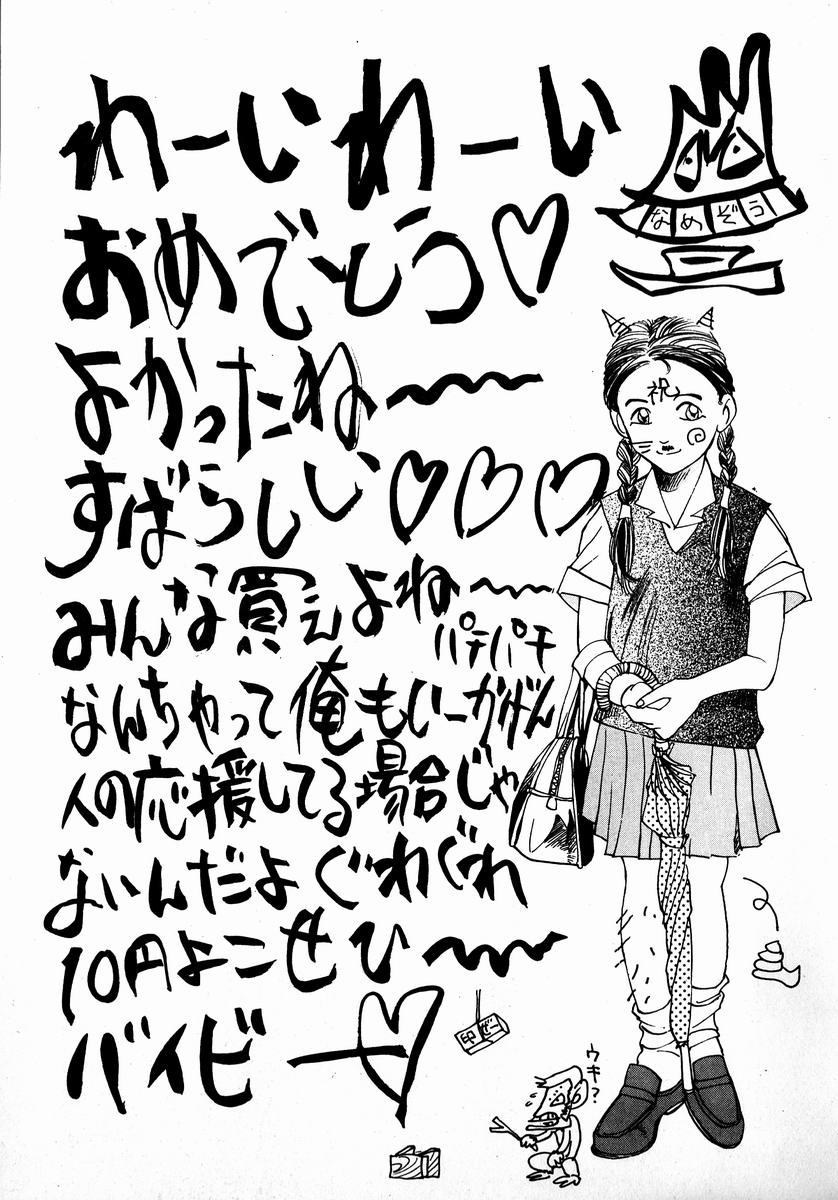 わーいわーい
なめぞう
おめでとう♡
よかったね〜〜
すばらしい♡♡♡
祝
みんな買えよね〜〜
パチパチ
なんちゃって俺もいーかげん
人の応援してる場合じゃ
ないんだよ ぐわぐれ
10円よこせひ〜〜
バイビー♡
ウキ?